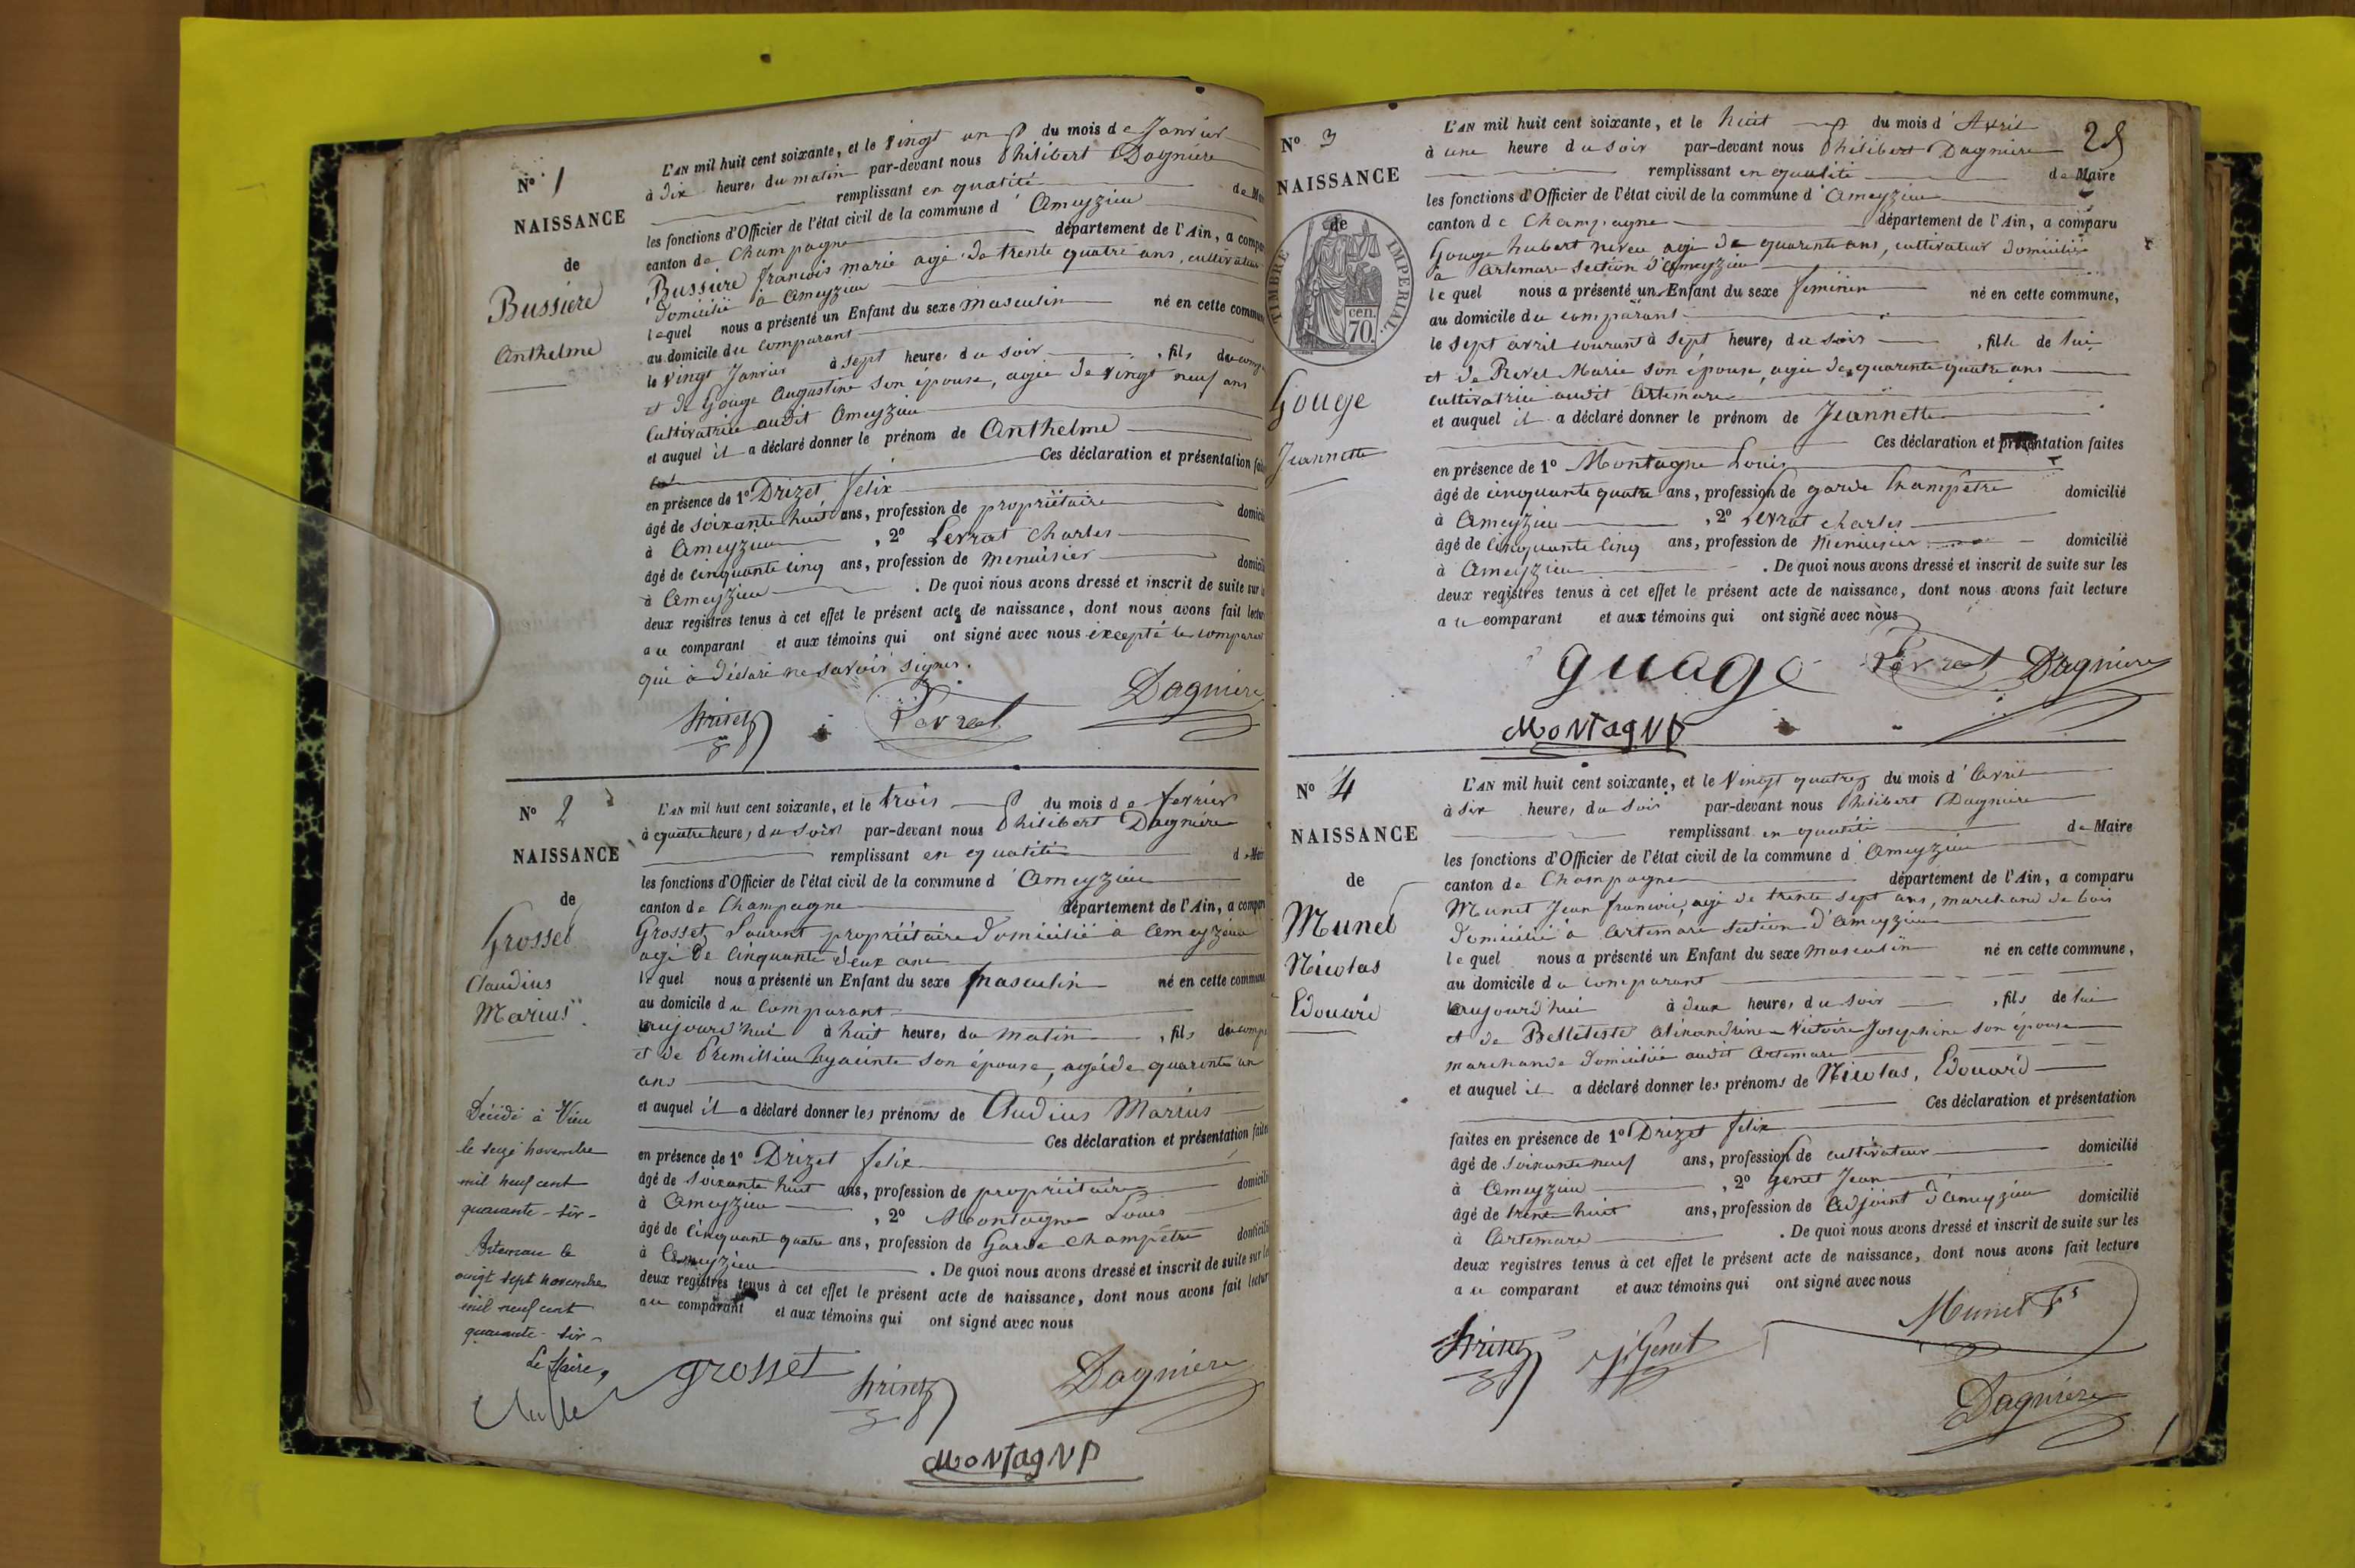 N° 1
NAISSANCE
de
Bussiere
Anthelme
L'AN mil huit cent soixante, et le vingt un du mois de Janvier
à dix heures du matin par-devant nous Philibert Dagniere
remplissant en qualité de Mai
les fonctions d'Officier de l'état civil de la commune d'Ameyzieu
canton de Champagne département de l'Ain, a compa
Bussiere françois marie agé de trente quatre ans, cultivateur
domicilié à Ameyzieu
lequel nous a présenté un Enfant du sexe masculin né en cette commun
au domicile du comparant
le vingt Janvier à sept heures du soir, fils du comp
et de Gouge Augustine son épouse, agée de vingt neuf ans
Cultivatrice audit Ameyzieu
et auquel il a déclaré donner le prénom de Anthelme
Ces déclaration et présentation fai
en présence de 1° Drizet felix
âgé de soixante huit ans, profession de propriétaire domicil
à Ameyzieu, 2° Levrat Charles
âgé de cinquante cinq ans, profession de menuisier domicil
à Ameyzieu. De quoi nous avons dressé et inscrit de suite sur l
deux registres tenus à cet effet le présent acte de naissance, dont nous avons fait lectur
au comparant et aux témoins qui ont signé avec nous excepté le comparant
qui à déclaré ne savoir signer.
Drizet Levrat Dagniere
N° 2
NAISSANCE
de
Grosset
Claudius
Marius
Décédé à Vieu
le seize novembre
mil neuf cent
quarante-six-
Artemare le
vingt sept novembre
mil neuf cent
quarante-six-
Le Maire,
L'AN mil huit cent soixante, et le trois du mois de fevrier
à quatre heures du soir par-devant nous Philibert Dagniere
remplissant en qualité de Mai
les fonctions d'Officier de l'état civil de la commune d'Ameyzieu
canton de Champagne département de l'Ain, a compar
Grosset Laurent propriétaire domicilié à Ameyzieu
agé de Cinquante deux ans
lequel nous a présenté un Enfant du sexe masculin né en cette commune
au domicile du Comparant
aujourd'hui à huit heures du matin, fils du comp
et de Premillieu hyacinte son épouse, agée de quarente un
ans
et auquel il a déclaré donner les prénoms de Claudius Marius
Ces déclaration et présentation faites
en présence de 1° Drizet felix
âgé de soixante huit ans, profession de propriétaire domicili
à Ameyzieu, 2° Montagne Louis
âgé de Cinquant quatre ans, profession de Garde champêtre domicili
à Ameyzieu. De quoi nous avons dressé et inscrit de suite sur le
deux registres tenus à cet effet le présent acte de naissance, dont nous avons fait lectur
au comparant et aux témoins qui ont signé avec nous
grosset Drizet Dagniere
MONTAGNE
25
N° 3
NAISSANCE
de
TIMBRE IMPERIAL
70 cen.
Gouge
Jeannette
L'AN mil huit cent soixante, et le huit du mois d'Avril
à une heure du soir par-devant nous Philibert Dagniere
remplissant en qualité de Maire
les fonctions d'Officier de l'état civil de la commune d'Ameyzieu
canton de Champagne département de l'Ain, a comparu
Gouge hubert neveu agé de quarente ans, cultivateur domicilié
à Artemare section d'Ameyzieu
lequel nous a présenté un Enfant du sexe feminin né en cette commune,
au domicile du comparant
le sept avril courant à sept heures du soir, fille de lui
et de Revel Marie son épouse, agée de quarente quatre ans
cultivatrice audit Artemare
et auquel il a déclaré donner le prénom de Jeannette
Ces déclaration et présentation faites
en présence de 1° Montagne Louis
âgé de cinquante quatre ans, profession de garde Champêtre domicilié
à Ameyzieu, 2° Levrat Charles
âgé de Cinquante Cinq ans, profession de Menuisier domicilié
à Ameyzieu. De quoi nous avons dressé et inscrit de suite sur les
deux registres tenus à cet effet le présent acte de naissance, dont nous avons fait lecture
au comparant et aux témoins qui ont signé avec nous
guage Levrat Dagniere
MONTAGNE
N° 4
NAISSANCE
de
Munet
Nicolas
Edouard
L'AN mil huit cent soixante, et le Vingt quatre du mois d'Avril
à six heures du soir par-devant nous Philibert Dagniere
remplissant en qualité de Maire
les fonctions d'Officier de l'état civil de la commune d'Ameyzieu
canton de Champagne département de l'Ain, a comparu
Munet Jean francois, agé de trente sept ans, marchand de bois
domicilié à Artemare section d'Ameyzieu
lequel nous a présenté un Enfant du sexe masculin né en cette commune,
au domicile du comparant
aujourd'hui à deux heures du soir, fils de lui
et de Belleteste Alexandrine Victoire Josephine son épouse
marchande domiciliée audit Artemare
et auquel il a déclaré donner les prénoms de Nicolas, Edouard
Ces déclaration et présentation
faites en présence de 1° Drizet felix
âgé de soixante neuf ans, profession de cultivateur domicilié
à Ameyzieu, 2° Genet Jean
âgé de trente huit ans, profession de Adjoint d'Ameyzieu domicilié
à Artemare. De quoi nous avons dressé et inscrit de suite sur les
deux registres tenus à cet effet le présent acte de naissance, dont nous avons fait lecture
au comparant et aux témoins qui ont signé avec nous
Drizet J Genet Munet Fs
Dagniere